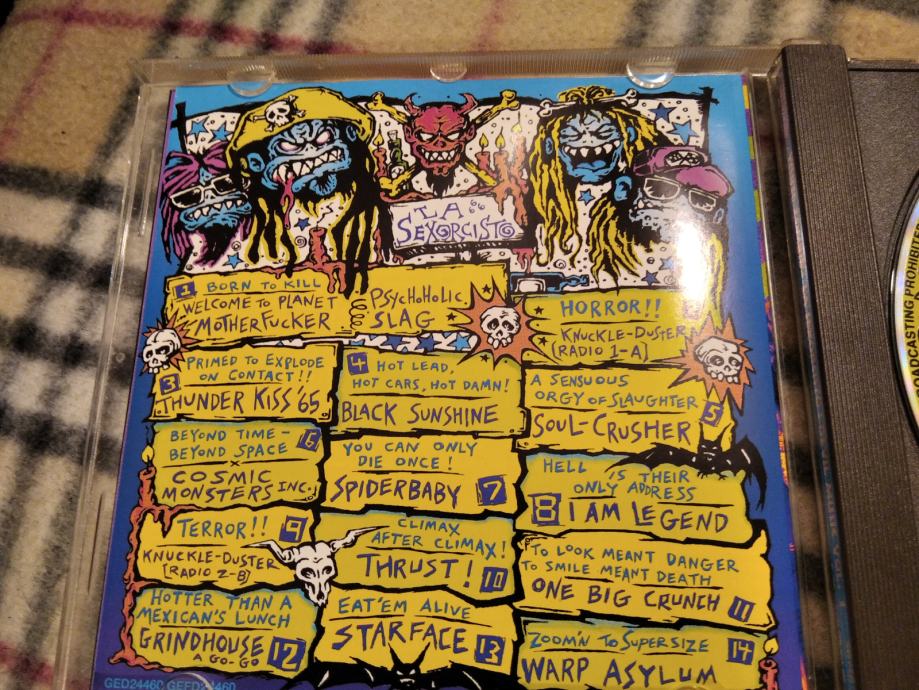 LA
SEXORCISTO
1 BORN TO KILL
WELCOME TO PLANET
MOTHERFUCKER
PSYCHOHOLIC
SLAG
HORROR!!
KNUCKLE-DUSTER
[RADIO 1-A]
3 PRIMED TO EXPLODE
ON CONTACT!!
THUNDER KISS '65
4 HOT LEAD,
HOT CARS, HOT DAMN!
BLACK SUNSHINE
A SENSUOUS
ORGY OF SLAUGHTER
SOUL-CRUSHER 5
BEYOND TIME- 6
BEYOND SPACE
COSMIC
MONSTERS INC.
YOU CAN ONLY
DIE ONCE!
SPIDERBABY 7
HELL IS THEIR
ONLY ADDRESS
8 I AM LEGEND
TERROR!! 9
KNUCKLE-DUSTER
[RADIO 2-B]
CLIMAX
AFTER CLIMAX!
THRUST! 10
TO LOOK MEANT DANGER
TO SMILE MEANT DEATH
ONE BIG CRUNCH 11
HOTTER THAN A
MEXICAN'S LUNCH
GRINDHOUSE 12
A GO-GO
EAT'EM ALIVE
STARFACE 13
ZOOM'N TO SUPERSIZE 14
WARP ASYLUM
GED24460 GEFD24460